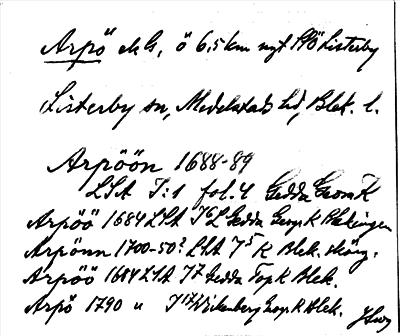 Arpö ek G, ö 6,5 km nyt PÖ Listerby
Listerby sn, Medelstads hd, Blek. l.
Arpöön 1688-89
LSA I:1 fol. 4 Gedda Geom K
Arpöö 1684 LSA Gedda Geogr K Blekingen
Arpönn 1700-50? LSA K Blek. skärg.
Arpöö 1684 LSA I 7 Gedda Top K Blek.
Arpö 1790 u I 17 Wikenberg Geogr K Blek.